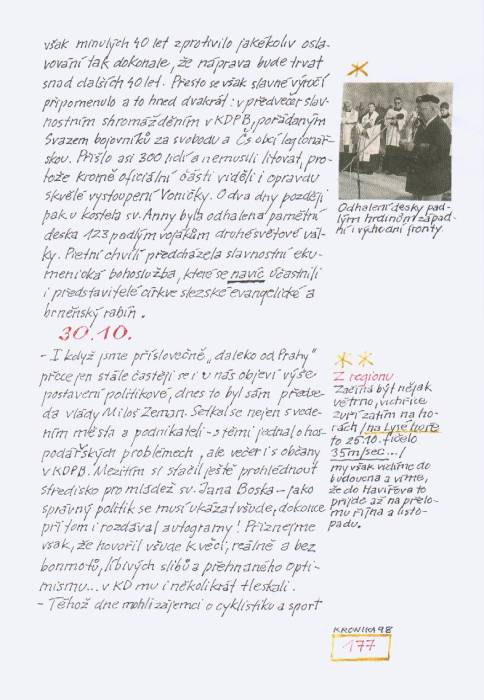 však minulých 40 let zprotivilo jakékoliv osla-
vování tak dokonale, že náprava bude trvat
snad dalších 40 let. Presto se však slavné výročí
připomenulo a to hned dvakrát: v předvečer slav-
nostním shromážděním v KDPB, pořádaným
Svazem bojovníků za svobodu a Čs obcí legionář-
skou. Přišlo asi 300 lidí a nemusili litovat, pro-
tože kromě oficiální části viděli i opravdu
skvělé vystoupení Voničky. O dva dny později
pak u kostela sv. Anny byla odhalena pamětní
deska 123 padlým vojákům druhé světové vál-
ky. Pietní chvíli předcházela slavnostní eku-
menická bohoslužba, které se navíc účastnili
i představitelé církve slezské evangelické a
brněnský rabín.
30.10.
- I když jsme příslovečně "daleko od Prahy"
přece jen stále častěji se i u nás objeví výše
postavení politikové, dnes to byl sám předse-
da vlády Miloš Zeman. Setkal se nejen s vede-
ním města a podnikateli - s těmi jednal o hos-
podářských problémech, ale večer i s občany
v KDPB. Mezitím si stačil ještě prohlédnout
středisko pro mládež sv. Jana Boska - jako
správný politik se musí ukázat všude, dokonce
při tom i rozdával autogramy! Přiznejme
však, že hovořil všude k věci, reálně a bez
bonmotů, líbivých slibů a přehnaného opti-
mismu... v KD mu i několikrát tleskali.
- Téhož dne mohli zájemci o cyklistiku a sport
Odhalení desky pad-
lým hrdinům západ-
ní i východní fronty.
Z regionu
Začíná být nějak
větrno, vichřice
zuří zatím na ho-
rách /na Lysé hoře
to 25.10. fičelo
35m/sec.../
my však vidíme do
budoucna a víme,
že do Havířova to
přijde až na přelo-
mu října a listo-
padu.
KRONIKA 98
177